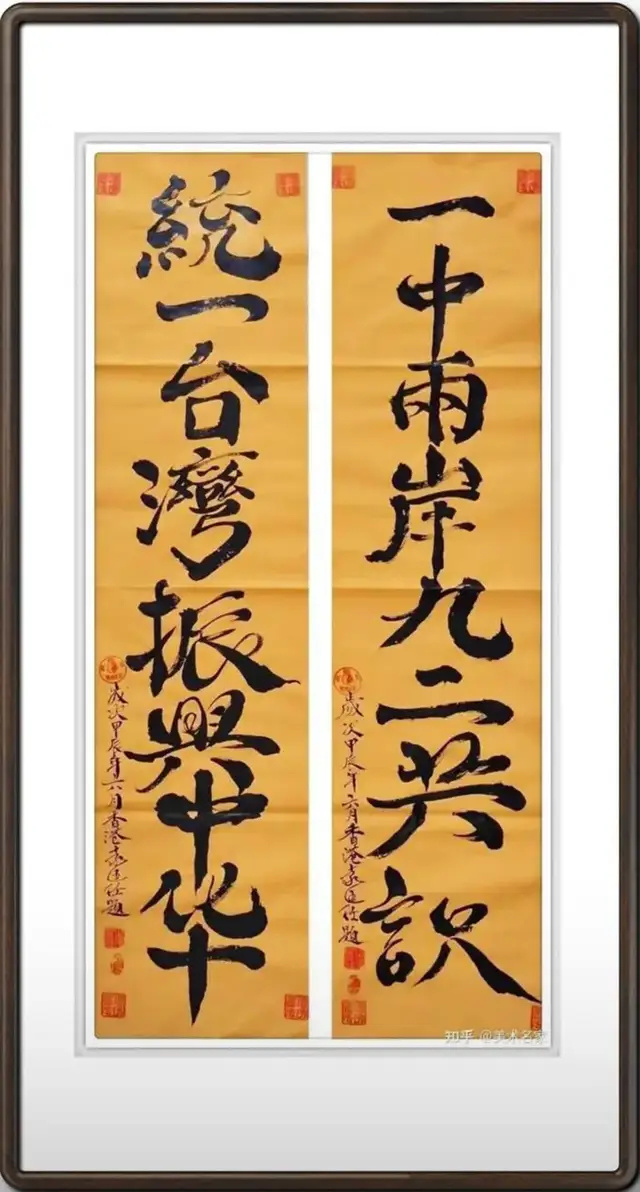 一中兩岸九二共訳
歲次甲辰年六月香港題
統一台灣振興中华
歲次甲辰年六月香港題
知乎 @美术名家